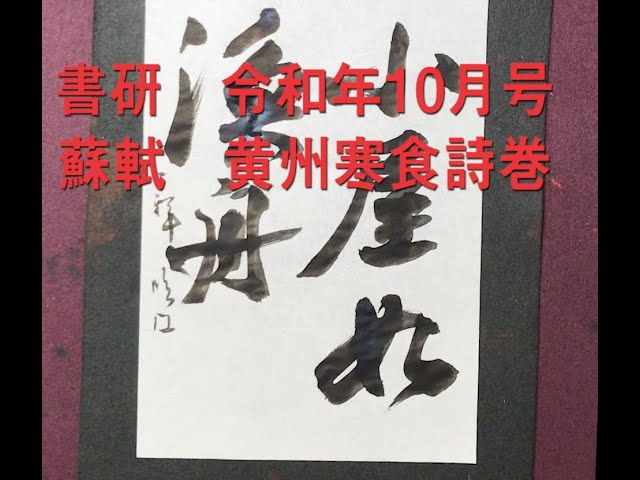 書研 令和年10月号
蘇軾 黄州寒食詩巻
小屋如
漁舟